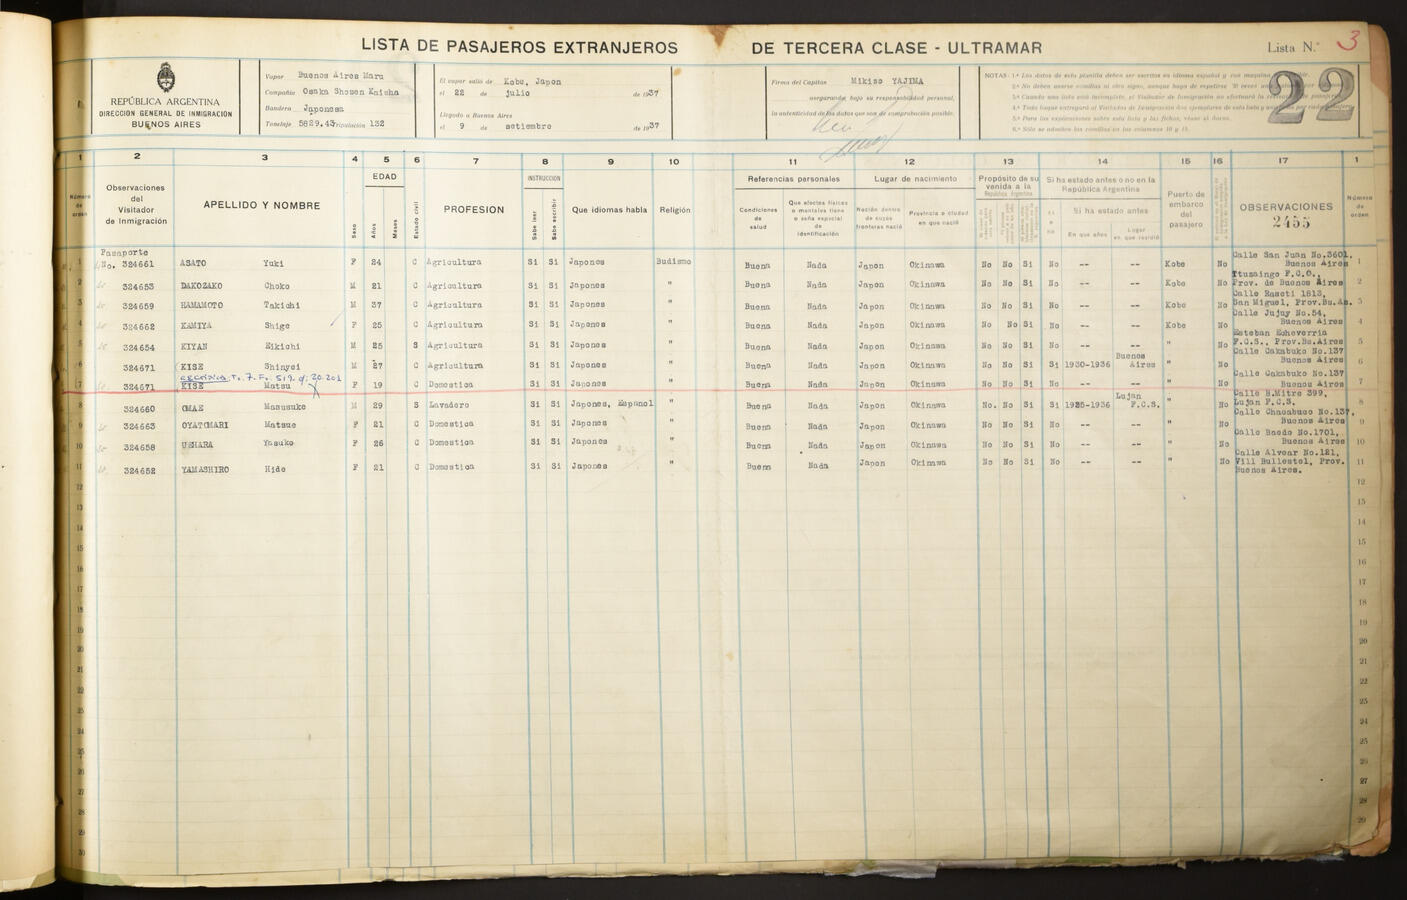 LISTA DE PASAJEROS EXTRANJEROS DE TERCERA CLASE - ULTRAMAR
Lista N.º 3
REPÚBLICA ARGENTINA
DIRECCIÓN GENERAL DE INMIGRACIÓN
BUENOS AIRES
Vapor Buenos Aires Maru
Compañía Osaka Shosen Kaisha
Bandera Japonesa
Tonelaje 5829.43 Tripulación 132
El vapor salió de Kobe, Japon
el 22 de julio de 1937
Llegado a Buenos Aires
el 9 de setiembre de 1937
Firma del Capitán Mikizo YAJIMA
asegurando, bajo su responsabilidad personal,
la autenticidad de los datos que son de comprobación posible.
22
1 2 3 4 5 6 7 8 9 10 11 12 13 14 15 16 17 1
Número de orden
Observaciones del Visitador de Inmigración
APELLIDO Y NOMBRE
Sexo
EDAD
Años
Meses
Estado civil
PROFESION
INSTRUCCION
Sabe leer
Sabe escribir
Que idiomas habla
Religión
Referencias personales
Condiciones de salud
Que efectos físicos o mentales tiene o seña especial de identificación
Lugar de nacimiento
Nación dentro de cuyas fronteras nació
Provincia o ciudad en que nació
Propósito de su venida a la República Argentina
Si ha estado antes o no en la República Argentina
Si ha estado antes
En que años
Lugar en que residió
Puerto de embarco del pasajero
OBSERVACIONES
2455
Número de orden
Pasaporte
1 No. 324661 ASATO Yuki F 24 C Agricultura Si Si Japones Budismo Buena Nada Japon Okinawa No No Si No -- -- Kobe No Calle San Juan No.3601, Buenos Aires 1
2 324653 DAKOZAKO Choko M 21 C Agricultura Si Si Japones " Buena Nada Japon Okinawa No No Si No -- -- Kobe No Ituzaingo F.C.O., Prov. de Buenos Aires 2
3 324659 HAMAMOTO Takichi M 37 C Agricultura Si Si Japones " Buena Nada Japon Okinawa No No Si No -- -- Kobe No Calle Raseti 1813, San Miguel, Prov.Bs.As. 3
4 324662 KAMIYA Shige F 25 C Agricultura Si Si Japones " Buena Nada Japon Okinawa No No Si No -- -- Kobe No Calle Jujuy No.54, Buenos Aires 4
5 324654 KIYAN Eikichi M 25 S Agricultura Si Si Japones " Buena Nada Japon Okinawa No No Si No -- -- " No Esteban Echeverria F.C.S., Prov.Bs.Aires 5
6 324671 KISE Shinyei M 27 C Agricultura Si Si Japones " Buena Nada Japon Okinawa No No Si Si 1930-1936 Buenos Aires " No Calle Cakabuko No.137 Buenos Aires 6
T. 7. F. 519. 20.201
7 324671 KISE Matsu F 19 C Domestica Si Si Japones " Buena Nada Japon Okinawa No No Si No -- -- " No Calle Cakabuko No.137 Buenos Aires 7
8 324660 OMAE Masusuke M 29 S Lavadero Si Si Japones, Español " Buena Nada Japon Okinawa No. No Si Si 1925-1936 Lujan F.C.S. " No Calle B.Mitre 399, Lujan F.C.S. 8
9 324663 OYATOMARI Matsue F 21 C Domestica Si Si Japones " Buena Nada Japon Okinawa No No Si No -- -- " No Calle Chacabuco No.137, Buenos Aires 9
10 324658 UEHARA Yasuko F 26 C Domestica Si Si Japones " Buena Nada Japon Okinawa No No Si No -- -- " No Calle Baedo No.1701, Buenos Aires 10
11 324652 YAMASHIRO Hide F 21 C Domestica Si Si Japones " Buena Nada Japon Okinawa No No Si No -- -- " No Calle Alvear No.121, Vill Bullestel, Prov. Buenos Aires. 11
12
13
14
15
16
17
18
19
20
21
22
23
24
25
26
27
28
29
30